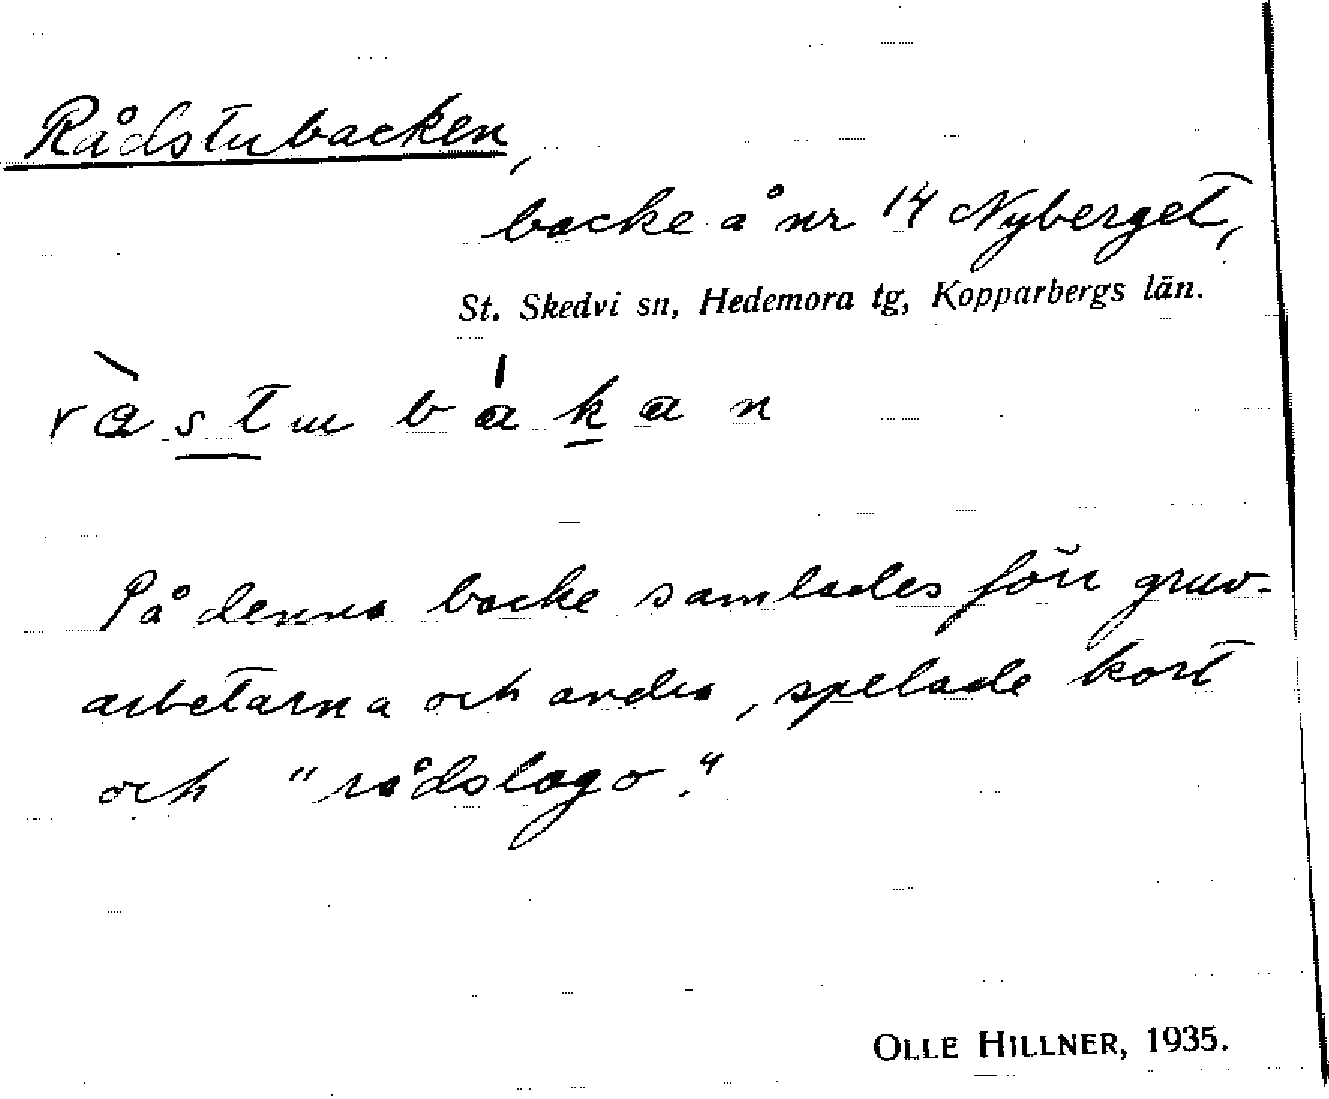 Rådstubacken,
backe å nr 14 Nyberget,
St. Skedvi sn, Hedemora tg, Kopparbergs län.
ràstubákan
På denna backe samlades förr gruv-
arbetarna och andra, spelade kort
och "rådslogo".
OLLE HILLNER, 1935.